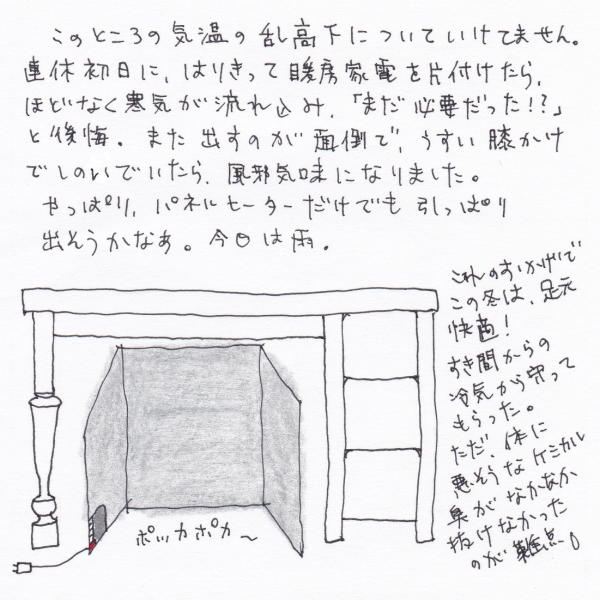 このところの気温の乱高下についていけてません。
連休初日に、はりきって暖房家電を片付けたら、
ほどなく寒気が流れ込み、「まだ必要だった!?」
と後悔。また出すのが面倒で、うすい膝かけ
でしのいでいたら、風邪気味になりました。
やっぱり、パネルヒーターだけでも引っぱり
出そうかなぁ。今日は雨。
これのおかげで
この冬は、足元
快適!
すき間からの
冷気から守って
もらった。
ただ、体に
悪そうなケミカル
臭がなかなか
抜けなかった
のが難点。
ポッカポカ〜